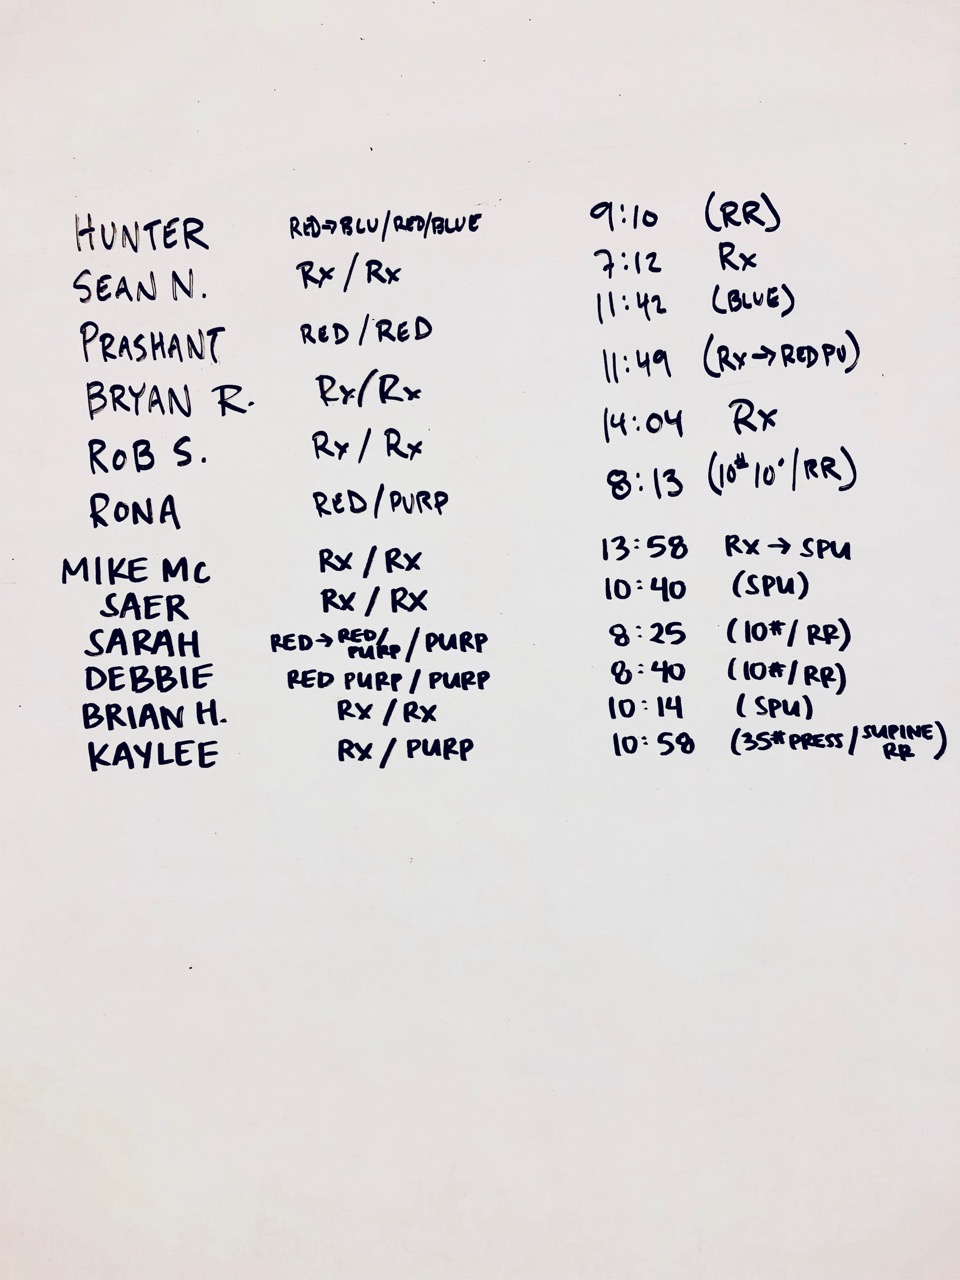 HUNTER RED→BLU/RED/BLUE 9:10 (RR)
SEAN N. Rx / Rx 7:12 Rx
PRASHANT RED / RED 11:42 (BLUE)
BRYAN R. Rx/Rx 11:49 (Rx→RED PU)
ROB S. Rx / Rx 14:04 Rx
RONA RED/PURP 8:13 (10# 10'/RR)
MIKE MC Rx / Rx 13:58 Rx → SPU
SAER Rx / Rx 10:40 (SPU)
SARAH RED→RED/PURP / PURP 8:25 (10#/RR)
DEBBIE RED PURP / PURP 8:40 (10#/RR)
BRIAN H. Rx / Rx 10:14 (SPU)
KAYLEE Rx / PURP 10:58 (35# PRESS / SUPINE RR)